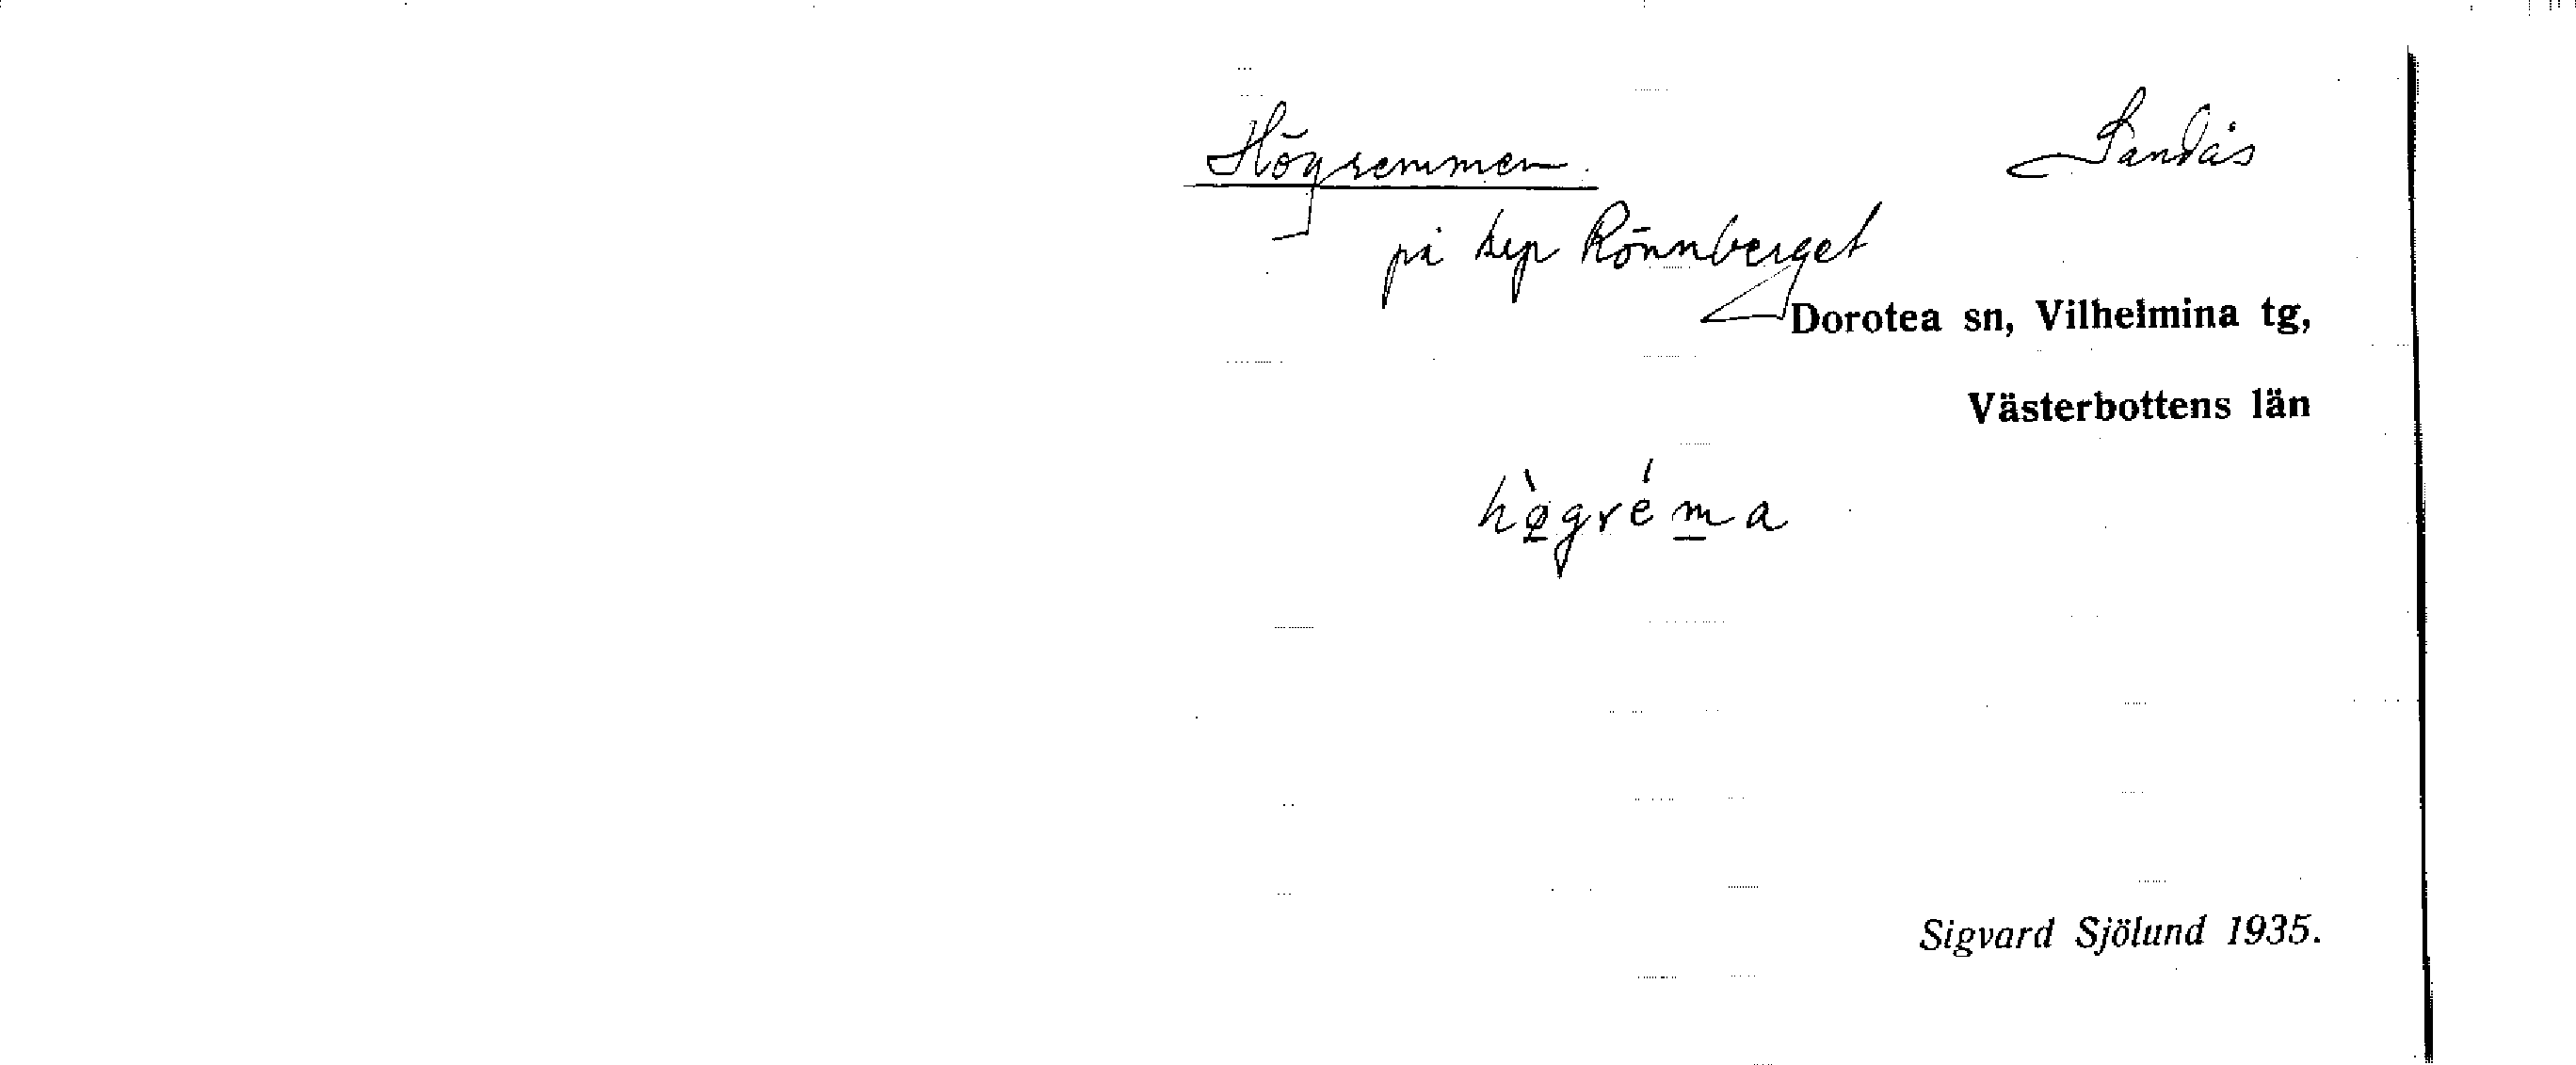 Högremmen. Sandås
på kep Rönnberget
Dorotea sn, Vilhelmina tg,
Västerbottens län
hø̀gréma
Sigvard Sjölund 1935.